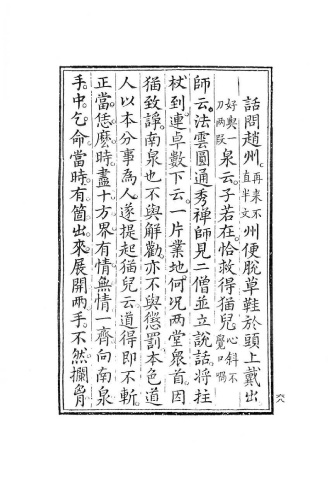 話問趙州再來不直半文州便脫草鞋於頭上戴出
好與一刀兩段泉云子若在恰救得猫兒心斜不覺口喎
師云法雲圓通秀禪師見二僧並立說話將拄
杖到連卓數下云一片業地何況兩堂眾首因
猫致諍南泉也不與解勸亦不與懲罰本色道
人以本分事為人遂提起猫兒云道得即不斬
正當恁麼時盡十方界有情無情一齊向南泉
手中乞命當時有箇出來展開兩手不然攔胷
六八